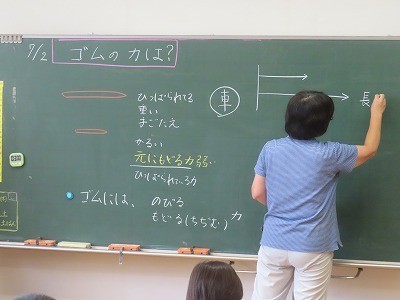 7/2 ゴムの力は?
ひっぱられてる
重い
まごたえ
かるい
元にもどる力弱い
ひっぱられている力
ゴムには、のびる
もどる(ちぢむ)力
車
長